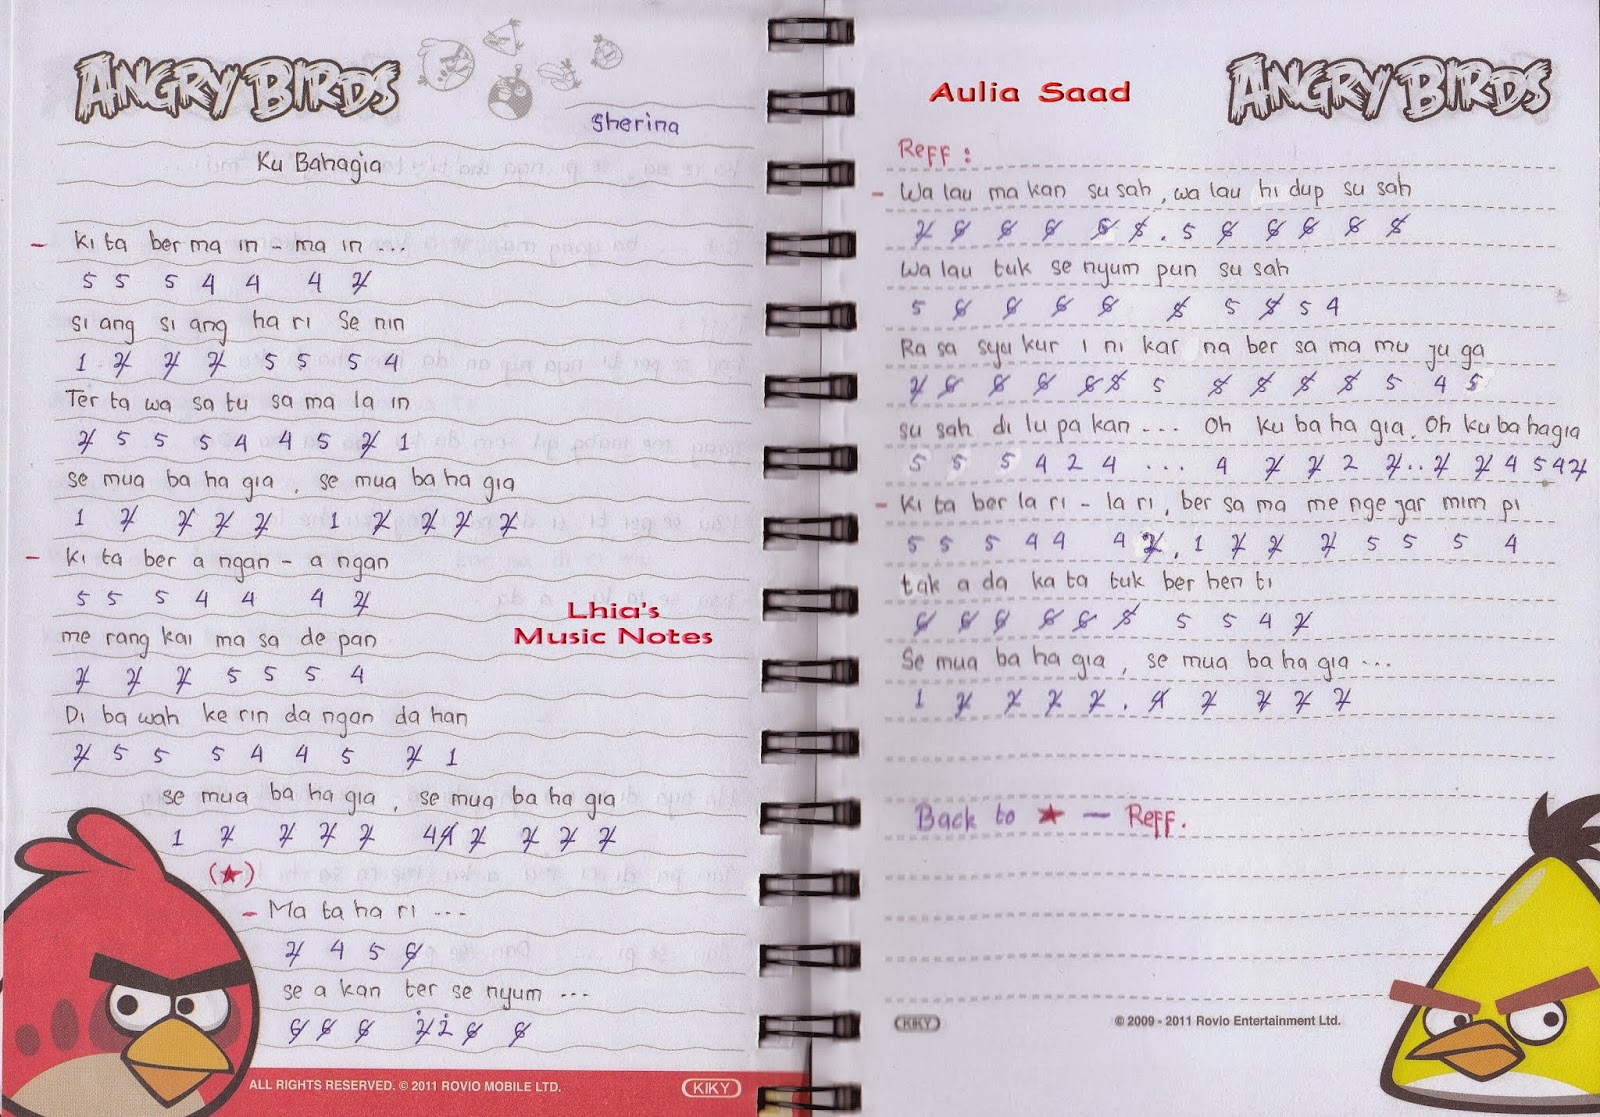 ANGRY BIRDS
Sherina
Ku Bahagia
- Ki ta ber ma in - ma in ...
5 5 5 4 4 4 2
si ang si ang ha ri Se nin
1 2 2 2 5 5 5 4
Ter ta wa sa tu sa ma la in
2 5 5 5 4 4 5 2 1
se mua ba ha gia , se mua ba ha gia
1 2 2 2 2 1 2 2 2 2
- Ki ta ber a ngan - a ngan
5 5 5 4 4 4 2
me rang kai ma sa de pan
2 2 2 5 5 5 4
Di ba wah ke rin da ngan da han
2 5 5 5 4 4 5 2 1
se mua ba ha gia , se mua ba ha gia
1 2 2 2 2 4 1 2 2 2 2
(★)
- Ma ta ha ri ...
2 4 5 6
se a kan ter se nyum ...
6 6 6 2 2 6 6
Lhia's
Music Notes
ALL RIGHTS RESERVED. © 2011 ROVIO MOBILE LTD.
KIKY
Aulia Saad
ANGRY BIRDS
Reff :
- Wa lau ma kan su sah , wa lau hi dup su sah
2 6 6 6 6 6 . 5 6 6 6 6 6
Wa lau tuk se nyum pun su sah
5 6 6 6 6 6 5 6 5 4
Ra sa syu kur i ni kar na ber sa ma mu ju ga
2 6 6 6 6 6 5 6 6 6 6 5 4 5
su sah di lu pa kan ... Oh ku ba ha gia. Oh ku ba ha gia
5 5 5 4 2 4 ... 4 2 2 2 2 .. 2 2 4 5 4 2
- Ki ta ber la ri - la ri , ber sa ma me nge jar mim pi
5 5 5 4 4 4 2 . 1 2 2 2 5 5 5 4
tak a da ka ta tuk ber hen ti
6 6 6 6 6 6 5 5 4 2
Se mua ba ha gia , se mua ba ha gia ...
1 2 2 2 2 . 1 2 2 2 2
Back to ★ - Reff.
KIKY
© 2009 - 2011 Rovio Entertainment Ltd.